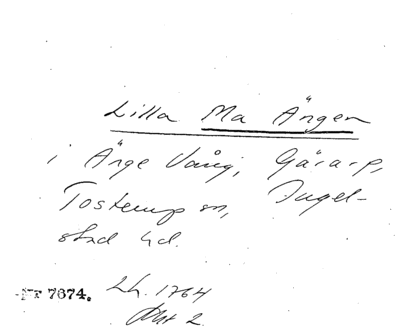 Lilla Ma Ängen
i Änge Vång, Gårarp,
Tosterup sn, Ingel-
stad hd.
Nr 7674. LH. 1764
Akt 2.